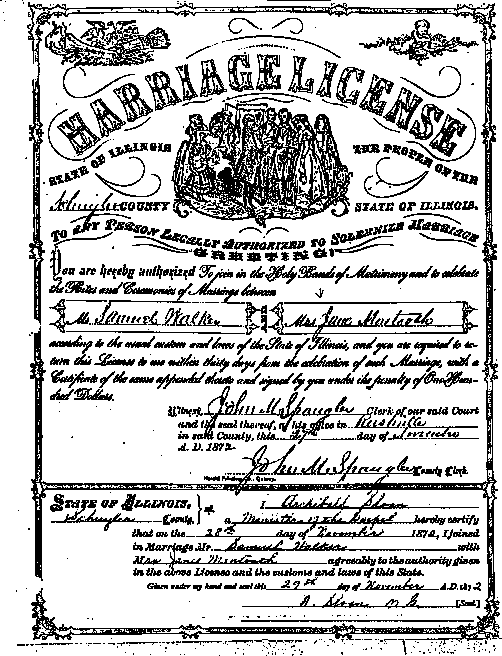 MARRIAGE LICENSE
STATE OF ILLINOIS THE PEOPLE OF THE
Schuyler COUNTY STATE OF ILLINOIS.
TO ANY PERSON LEGALLY AUTHORIZED TO SOLEMNIZE MARRIAGE
GREETING!
You are hereby authorized To join in the Holy Bands of Matrimony and to celebrate
the Rites and Ceremonies of Marriage between
Mr. Samuel Walker AND Mrs Jane
according to the usual customs and laws of the State of Illinois, and you are required to re-
turn this License to me within thirty days from the celebration of such Marriage, with a
Certificate of the same appended thereto and signed by you under the penalty of One Hun-
dred Dollars.
Witness, John M Spangler Clerk of our said Court
and the seal thereof, at his office in Rushville
in said County, this 27th day of November
A. D. 1872
John M. Spangler County Clerk.
STATE OF ILLINOIS. ss. I Archibald Sloan
Schuyler County. a Minister of the Gospel hereby certify
that on the 28th day of November 1872, I joined
in Marriage Mr. Samuel Walker with
Mrs Jane agreeably to the authority given
in the above License and the customs and laws of this State.
Given under my hand and seal this 29th day of November A.D. 187 2
A. Sloan [Seal]